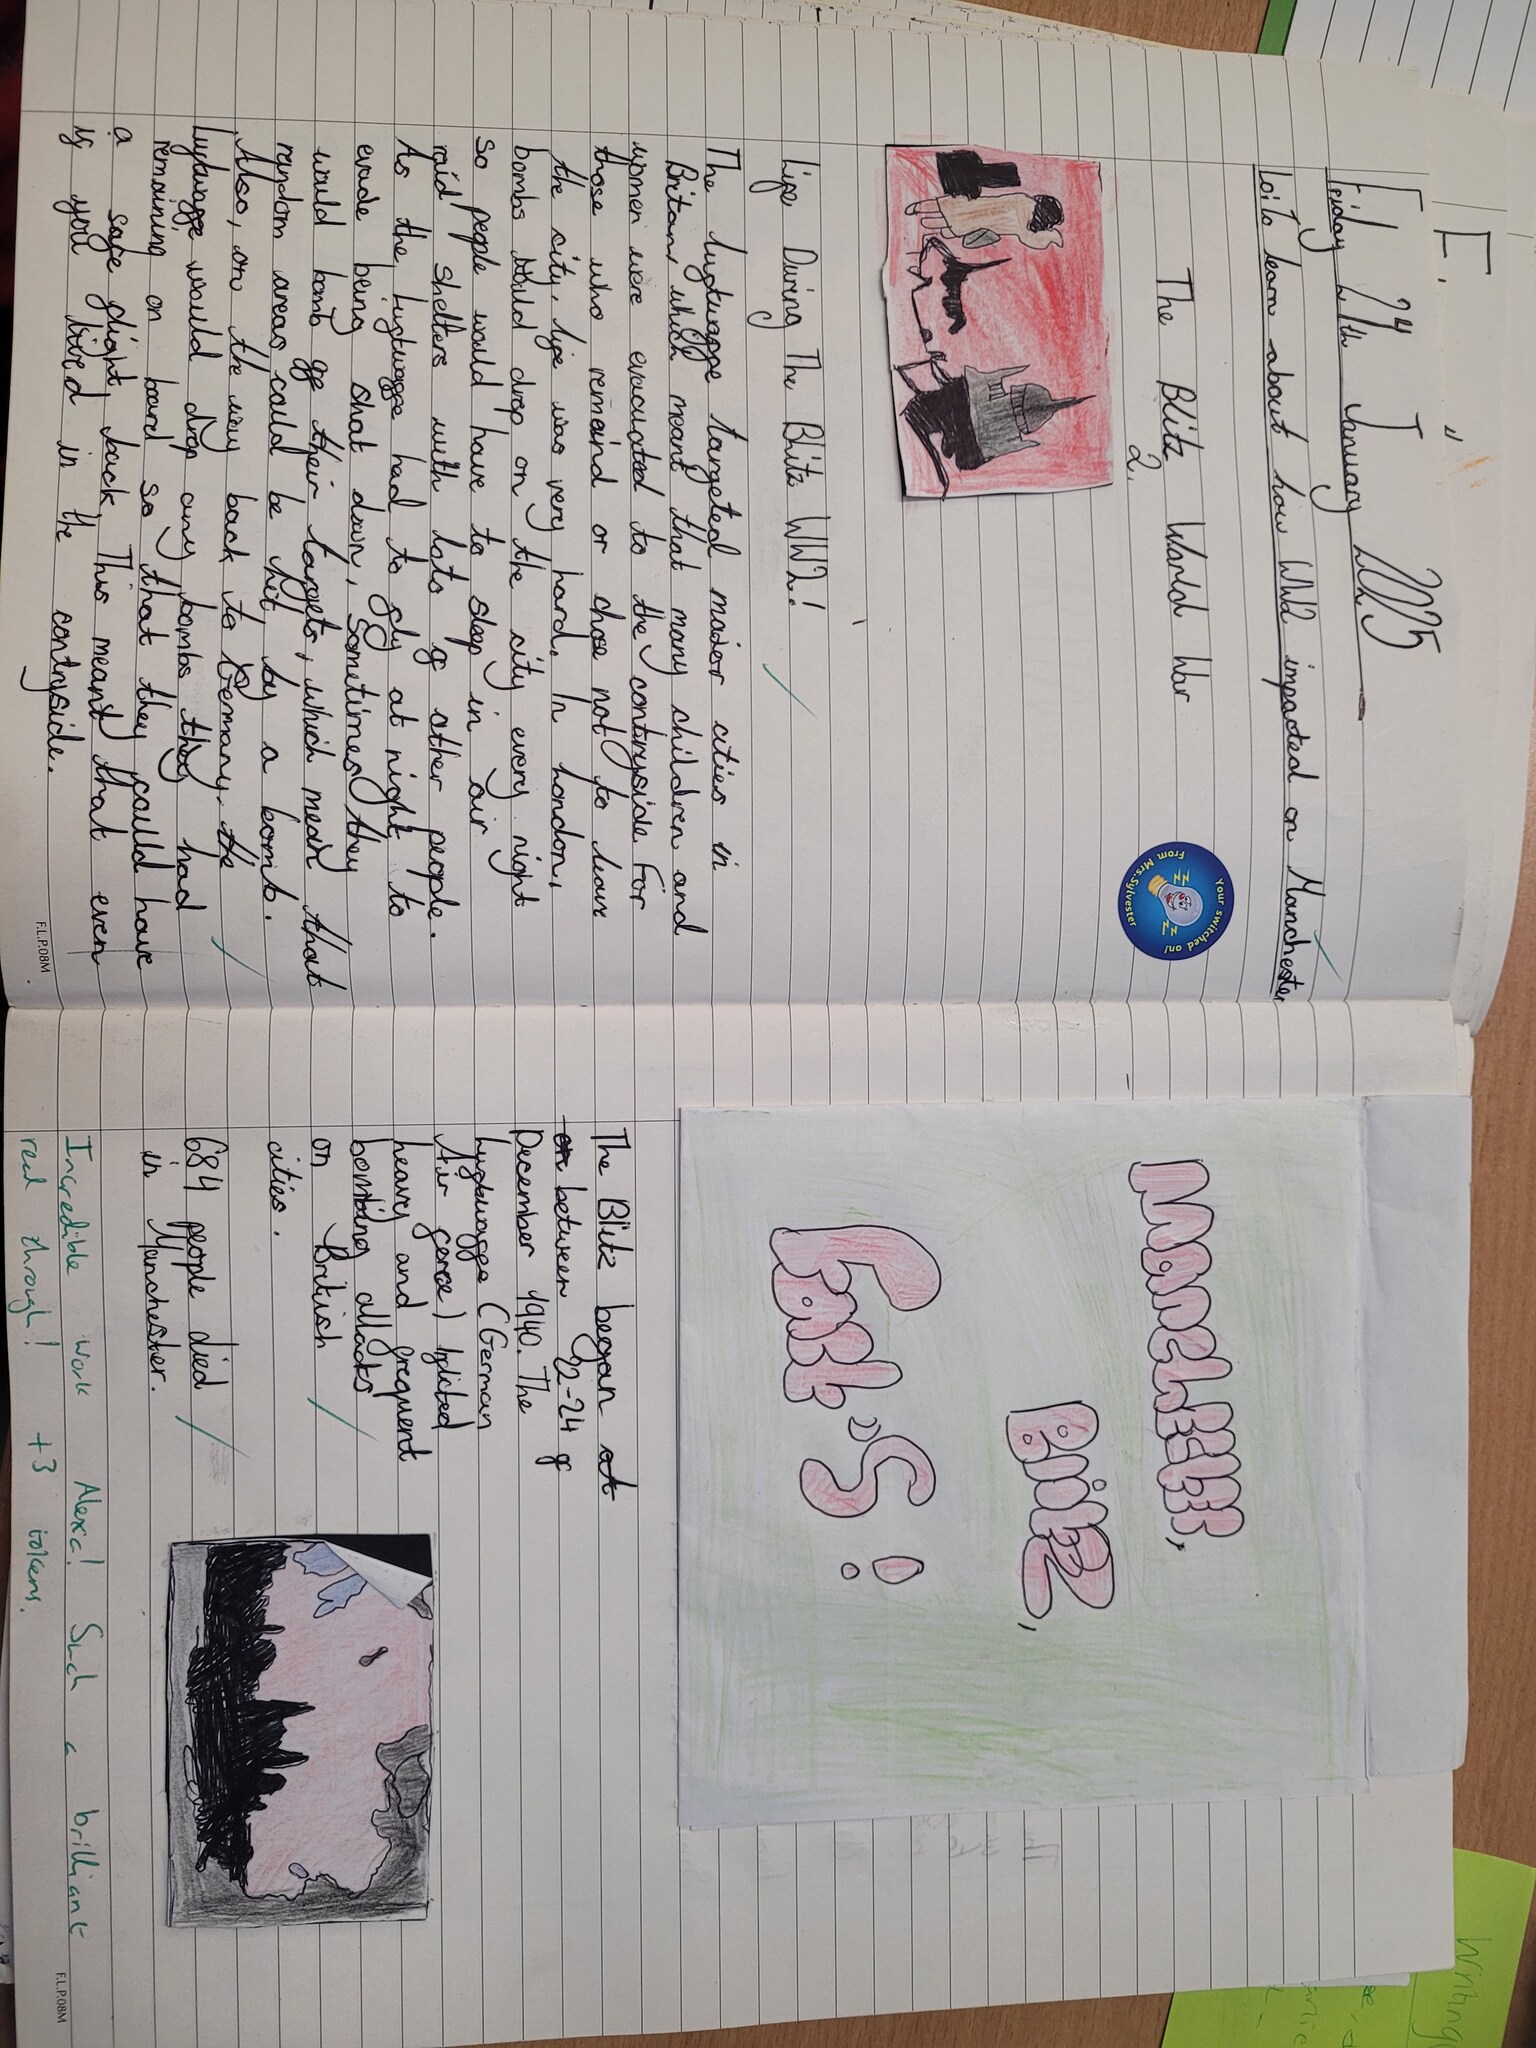 Friday 24th January 2025
Lo:To learn about how WW2 impacted on Manchester
The Blitz World War
2.
Your switched on!
From Mrs.Sylvester
Life During The Blitz WW2!
The luftwaffe targeted maior cities in
Britan, which meant that many children and
women were evacuated to the contryside. For
those who remaind or chose not to leave
the city, life was very hard. In London,
bombs would drop on the city every night
so people would have to sleep in air
raid shelters with lots of other people.
As the luftwaffe had to fly at night to
evade being shat down, sometimes they
would bomb off their targets, which mean that
random areas could be hit by a bomb.
Also, on the way back to Germany. the
luftwaffe would drop any bombs they had
remaining on board so that they could have
a safe flight back. This meant that even
if you lived in the contryside.
F.L.P.08M
Manchester,
Blitz,
Fact's!
The Blitz began at
on between 22-24 of
December 1940. The
luftwaffe (German
Air force)
heavy and frequent
bombing attacks
on British
cities.
684 people died
in Manchester.
Incredible work Alexa! Such a brilliant
read through! +3 tokens.
F.L.P.08M
Writing